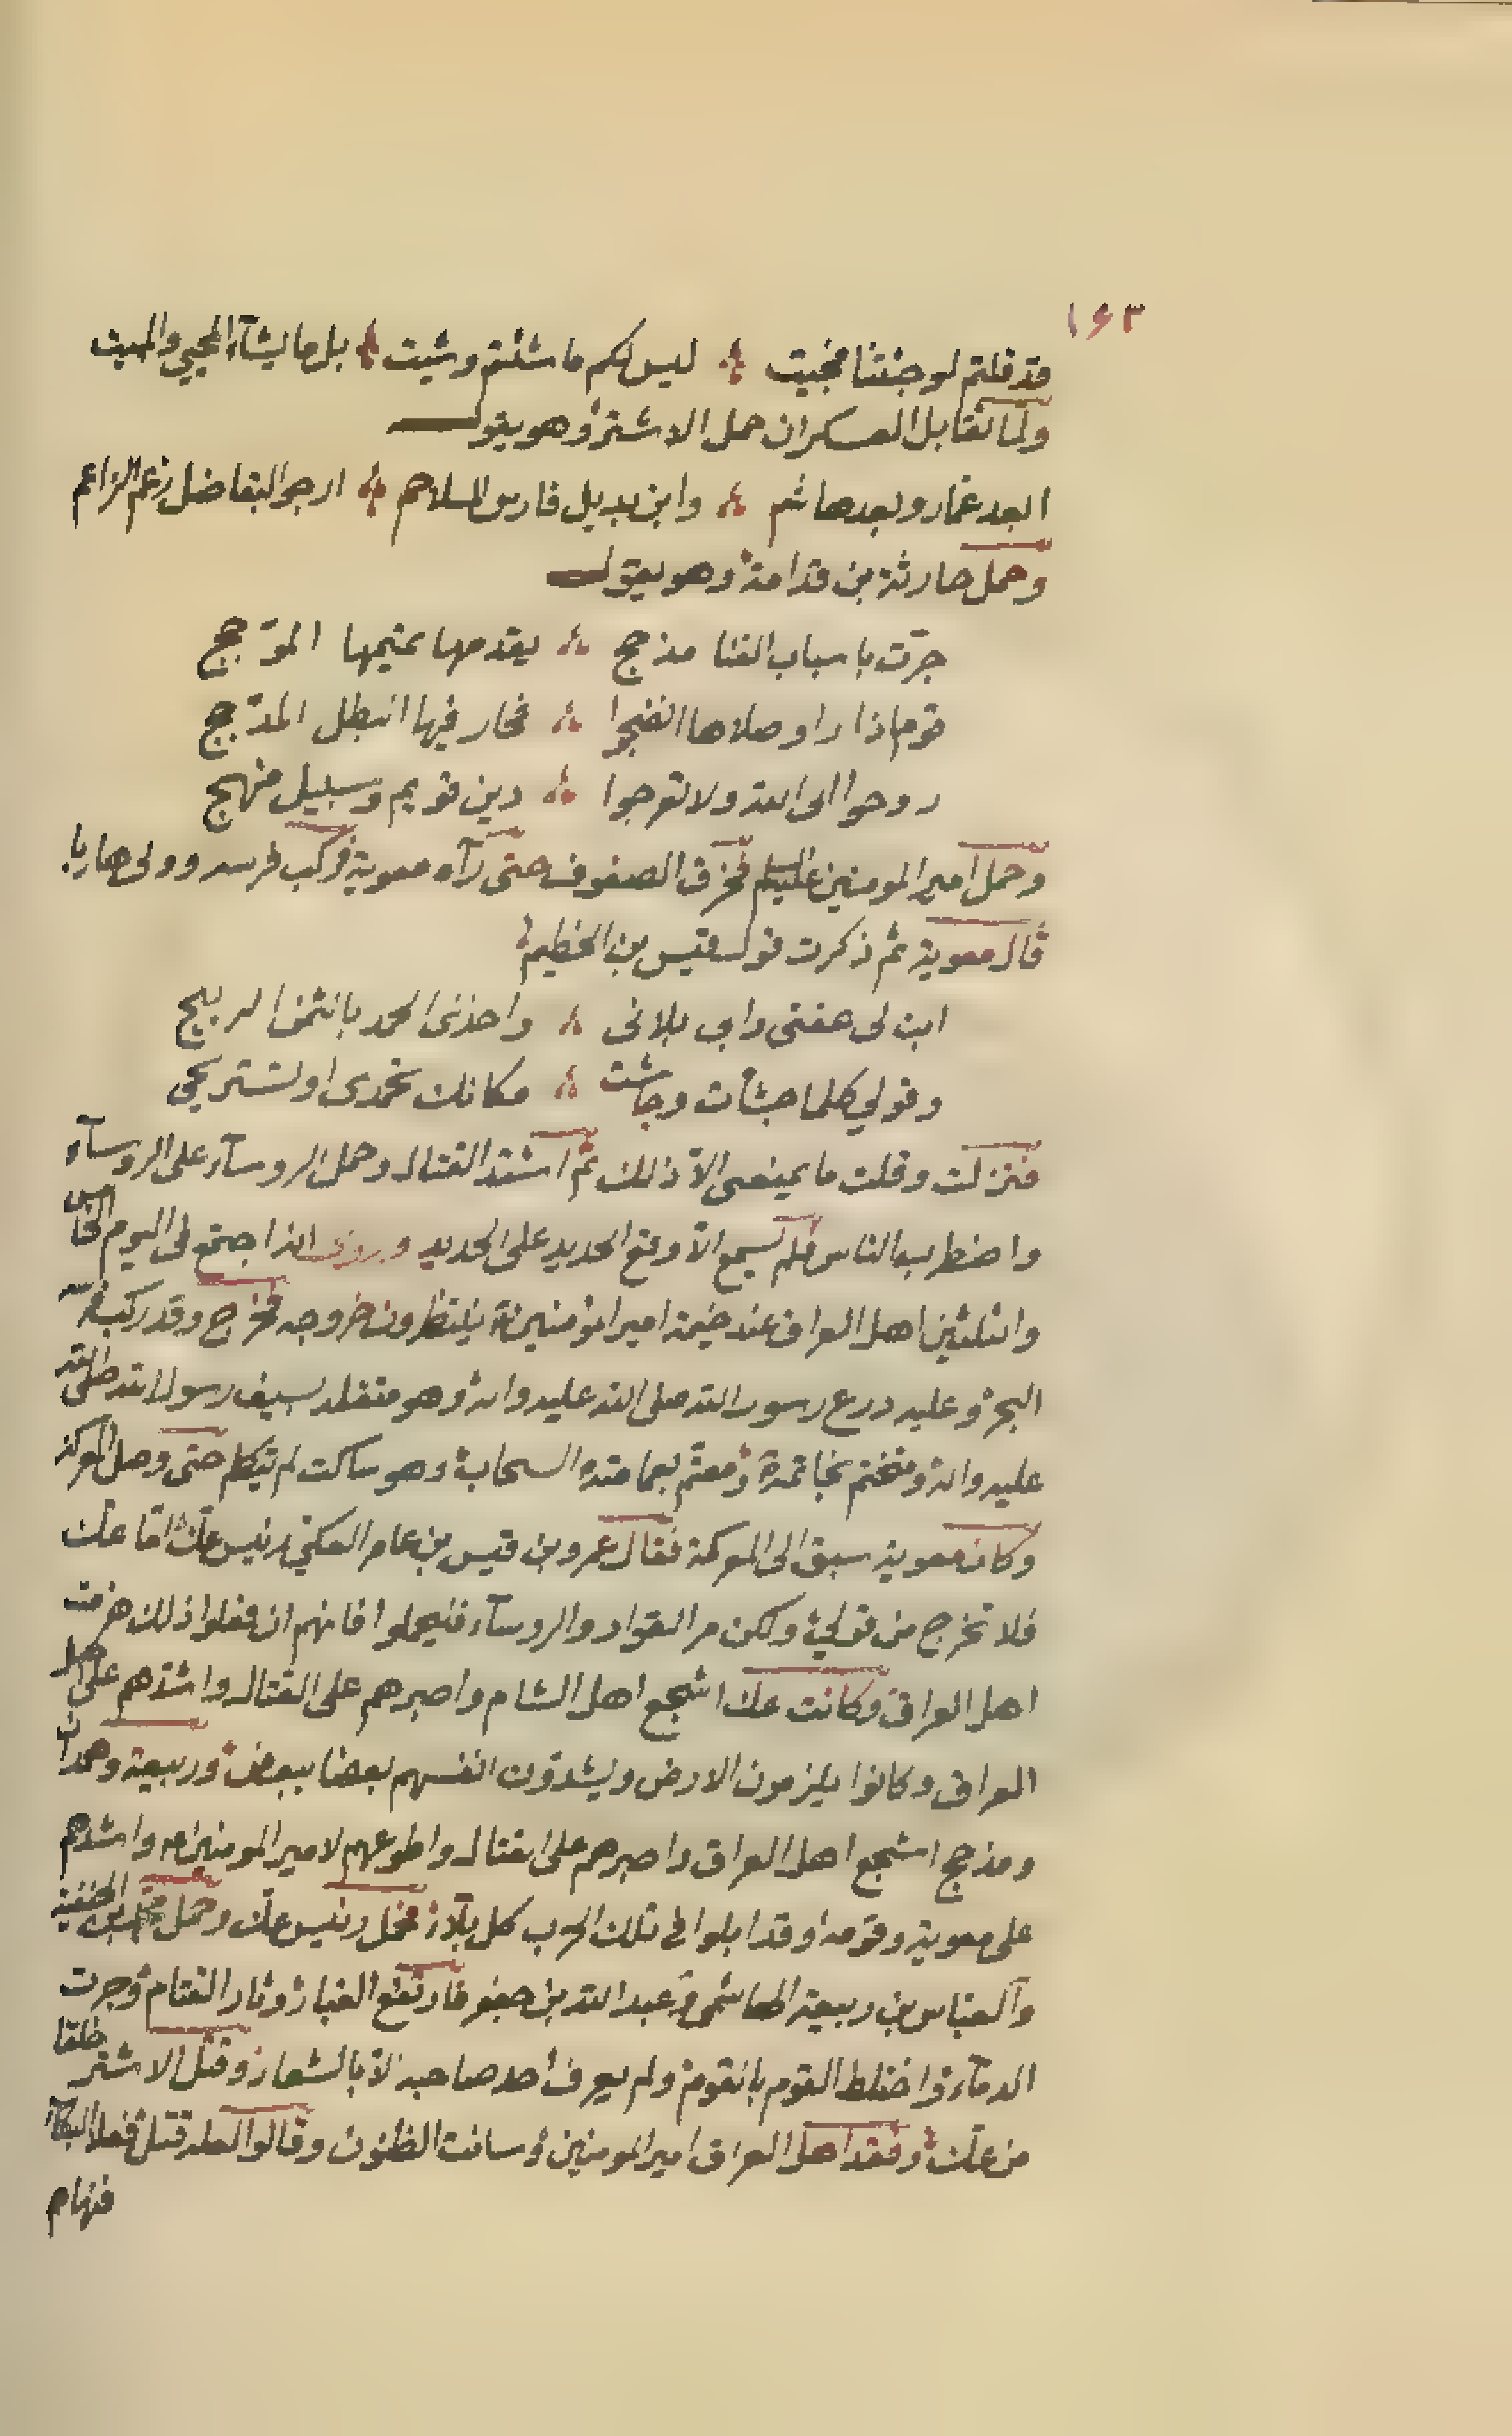 ١٦٣
قد قلتم لو جئتنا فجيت ليس لكم ما شئتم وشيت بل ما يشآء المحيي والمميت
ولما تقابل العسكران حمل الاشتر وهو يقول
ابعد عمار وبعد هاشم وابن بديل فارس الملاحم ارجو البقا ضل زعم الزاعم
وحمل حارثة بن قدامة وهو يقول
جرّت باسباب الفنا مذحج يقدمها عتيمها المؤجج
قوم اذا راوصلاها انضجوا فحار فيها البطل المدجج
روحوا الى الله ولا تعرجوا دين قويم وسبيل منهج
وحمل امير المومنين عليه السلم فخرق الصفوف حتى رآه معوية فركب فرسه وولى هاربا
قال معوية ثم ذكرت قول قيس بن الخطيم
ابت لى عفتى وابى بلائى واخذى الحمد بالثمن الربيح
وقولي كلما جشأت وجاشت مكانك تحمدى او تستريحى
فنزلت وقلت ما يمينعى الّا ذلك ثم اشتد القتال وحمل الروسآء على الروسآء
واضطرب الناس فلم تسمع الّا وقع الحديد على الحديد وروى انه اجتمع فى اليوم الخامس
والثلثين اهل العراق عند خيمة امير المؤمنين ينتظرون خروجه فخرج وقد ركب فرس
البحر وعليه درع رسول الله صلى الله عليه واله وهو متقلد بسيف رسول الله صلى الله
عليه واله ومتختم بخاتمه ومعتم بعمامته السحاب وهو ساكت لم يتكلم حتى وصل المركز
وكان معوية سبق الى المعركة فقال عمرو بن قيس بن عامر العكي رئيس عك امّا عك
فلا تخرج من قولي ولكن مر القواد والروسآء فليحملوا فانهم ان فعلوا ذلك هزمت
اهل العراق وكانت عك اشجع اهل الشام واصبرهم على القتال واشدهم على اهل
العراق وكانوا يلزمون الارض ويشدون انفسهم بعضا ببعض وربيعة وهمدان
ومذحج اشجع اهل العراق واصبرهم على القتال واطوعهم لامير المومنين واشدهم
على معوية وقومه وقد ابلوا فى تلك الحرب كل بلآء فحمل رئيس عك وحمل محمد بن الحنفية
والعباس بن ربيعة الهاشمى وعبد الله بن جعفر فارتفع الغبار وثار القتام وجرت
الدمآء واختلط القوم بالقوم ولم يعرف احد صاحبه الّا بالشعار وقتل الاشتر خلقا
من عك وفقد اهل العراق امير المومنين وسائت الظنون وقالوا لعله قتل فعلا البكآء
فنهاهم